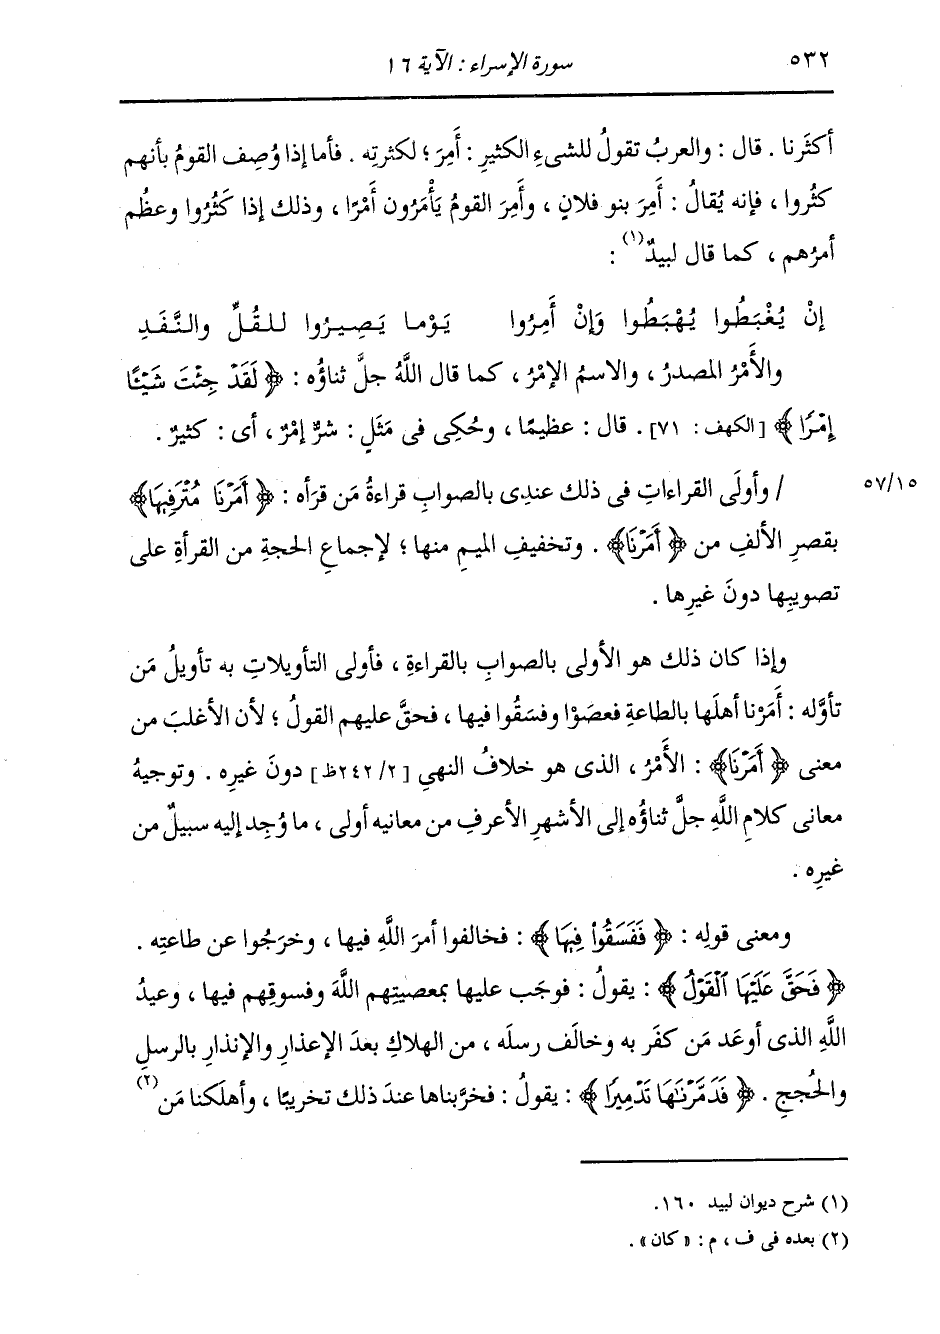 ٥٣٢ سورة الإسراء : الآية ١٦
أكثَرنا . قال : والعربُ تقولُ للشىءِ الكثيرِ : أَمِرَ ؛ لكثرتِه . فأما إذا وُصِف القومُ بأنهم
كثُروا ، فإنه يُقالُ : أَمِرَ بنو فلانٍ ، وأَمِرَ القومُ يَأْمَرُون أَمْرًا ، وذلك إذا كَثُرُوا وعظُم
أمرُهم ، كما قال لبيدٌ(١) :
إنْ يُغْبَطُوا يُهْبَطُوا وَإنْ أَمِرُوا يَوْما يَصِيرُوا للقُلِّ والنَّفَدِ
والأَمْرُ المصدرُ ، والاسمُ الإمْرُ ، كما قال اللَّهُ جلَّ ثناؤُه : ﴿ لَقَدْ جِئْتَ شَيْئًا
إِمْرًا ﴾ [الكهف : ٧١] . قال : عظيمًا ، وحُكِى فى مَثَلٍ : شرٌّ إمْرٌ ، أى : كثيرٌ .
٥٧/١٥ / وأولَى القراءاتِ فى ذلك عندِى بالصوابِ قراءةُ مَن قرَأه : ﴿ أَمَرْنَا مُتْرَفِيهَا ﴾
بقصرِ الألفِ من ﴿ أَمَرْنَا ﴾ . وتخفيفِ الميمِ منها ؛ لإجماعِ الحجةِ من القرأةِ على
تصويبِها دونَ غيرِها .
وإذا كان ذلك هو الأولى بالصوابِ بالقراءةِ ، فأولى التأويلاتِ به تأويلُ مَن
تأوَّله : أَمَرْنا أهلَها بالطاعةِ فعصَوْا وفسَقُوا فيها ، فحقَّ عليهم القولُ ؛ لأن الأغلبَ من
معنى ﴿ أَمَرْنَا ﴾ : الأَمْرُ ، الذى هو خلافُ النهىِ [٢٤٢/٢ظ] دونَ غيرِه . وتوجيهُ
معانى كلامِ اللَّهِ جلَّ ثناؤُه إلى الأشهرِ الأعرفِ من معانيه أولى ، ما وُجِد إليه سبيلٌ من
غيرِه .
ومعنى قولِه : ﴿ فَفَسَقُوا۟ فِيهَا ﴾ : فخالفوا أمرَ اللَّهِ فيها ، وخرَجُوا عن طاعتِه .
﴿ فَحَقَّ عَلَيْهَا ٱلْقَوْلُ ﴾ : يقولُ : فوجَب عليها بمعصيتِهم اللَّهَ وفسوقِهم فيها ، وعيدُ
اللَّهِ الذى أوعَد مَن كفَر به وخالَف رسلَه ، من الهلاكِ بعدَ الإعذارِ والإنذارِ بالرسلِ
والحُججِ . ﴿ فَدَمَّرْنَٰهَا تَدْمِيرًا ﴾ : يقولُ : فخرَّبناها عندَ ذلك تخريبًا ، وأهلَكنا مَن(٢)
(١) شرح ديوان لبيد ١٦٠.
(٢) بعده فى ف ، م : « كان » .